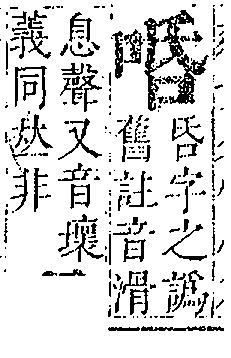 字之譌
舊註音滑
息聲又音壞
義同𠀤非